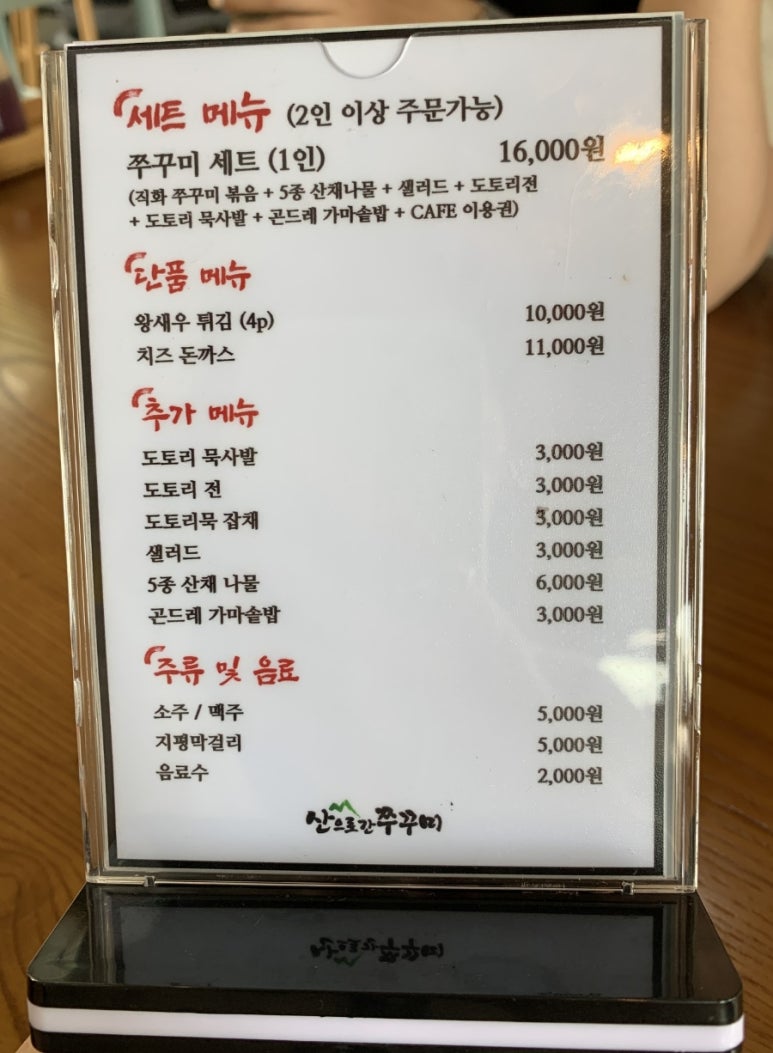 세트 메뉴 (2인 이상 주문가능)
쭈꾸미 세트 (1인) 16,000원
(직화 쭈꾸미 볶음 + 5종 산채나물 + 샐러드 + 도토리전
+ 도토리 묵사발 + 곤드레 가마솥밥 + CAFE 이용권)
단품 메뉴
왕새우 튀김 (4p) 10,000원
치즈 돈까스 11,000원
추가 메뉴
도토리 묵사발 3,000원
도토리 전 3,000원
도토리묵 잡채 3,000원
샐러드 3,000원
5종 산채 나물 6,000원
곤드레 가마솥밥 3,000원
주류 및 음료
소주 / 맥주 5,000원
지평막걸리 5,000원
음료수 2,000원
산으로간쭈꾸미